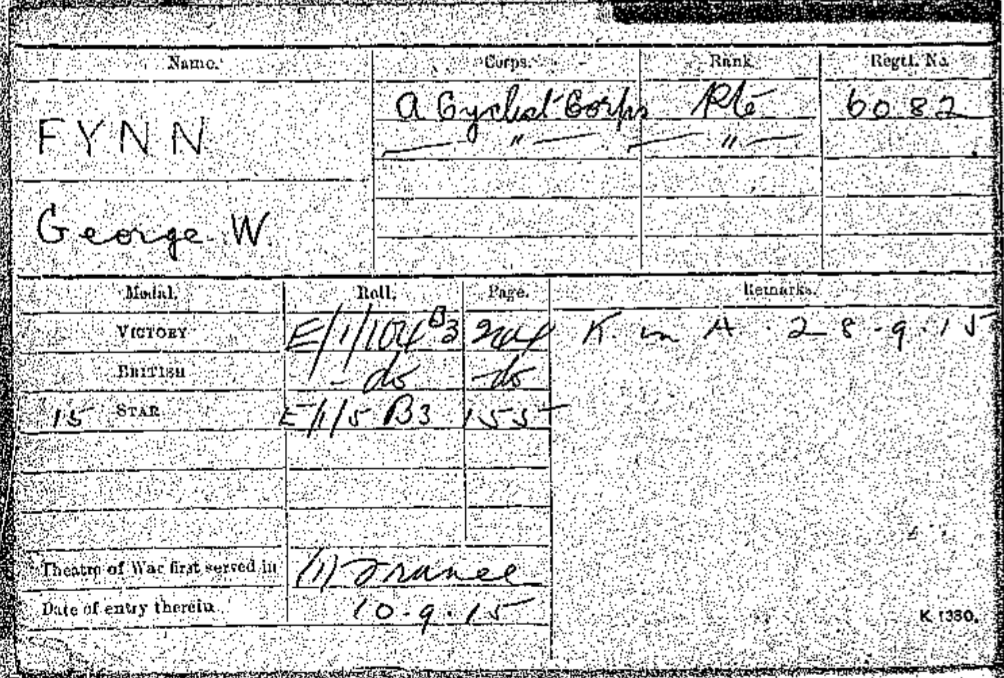 Name. Corps. Rank Regtl. No.
FYNN A Cyclist Corps Pte 6082
— " — — " —
George W.
Medal. Roll. Page. Remarks.
VICTORY E/1/104 B3 K in A 28.9.15
BRITISH - do - do
15 STAR E/1/5 B3 155
Theatre of War first served in (1) France
Date of entry therein 10.9.15
K 1380.